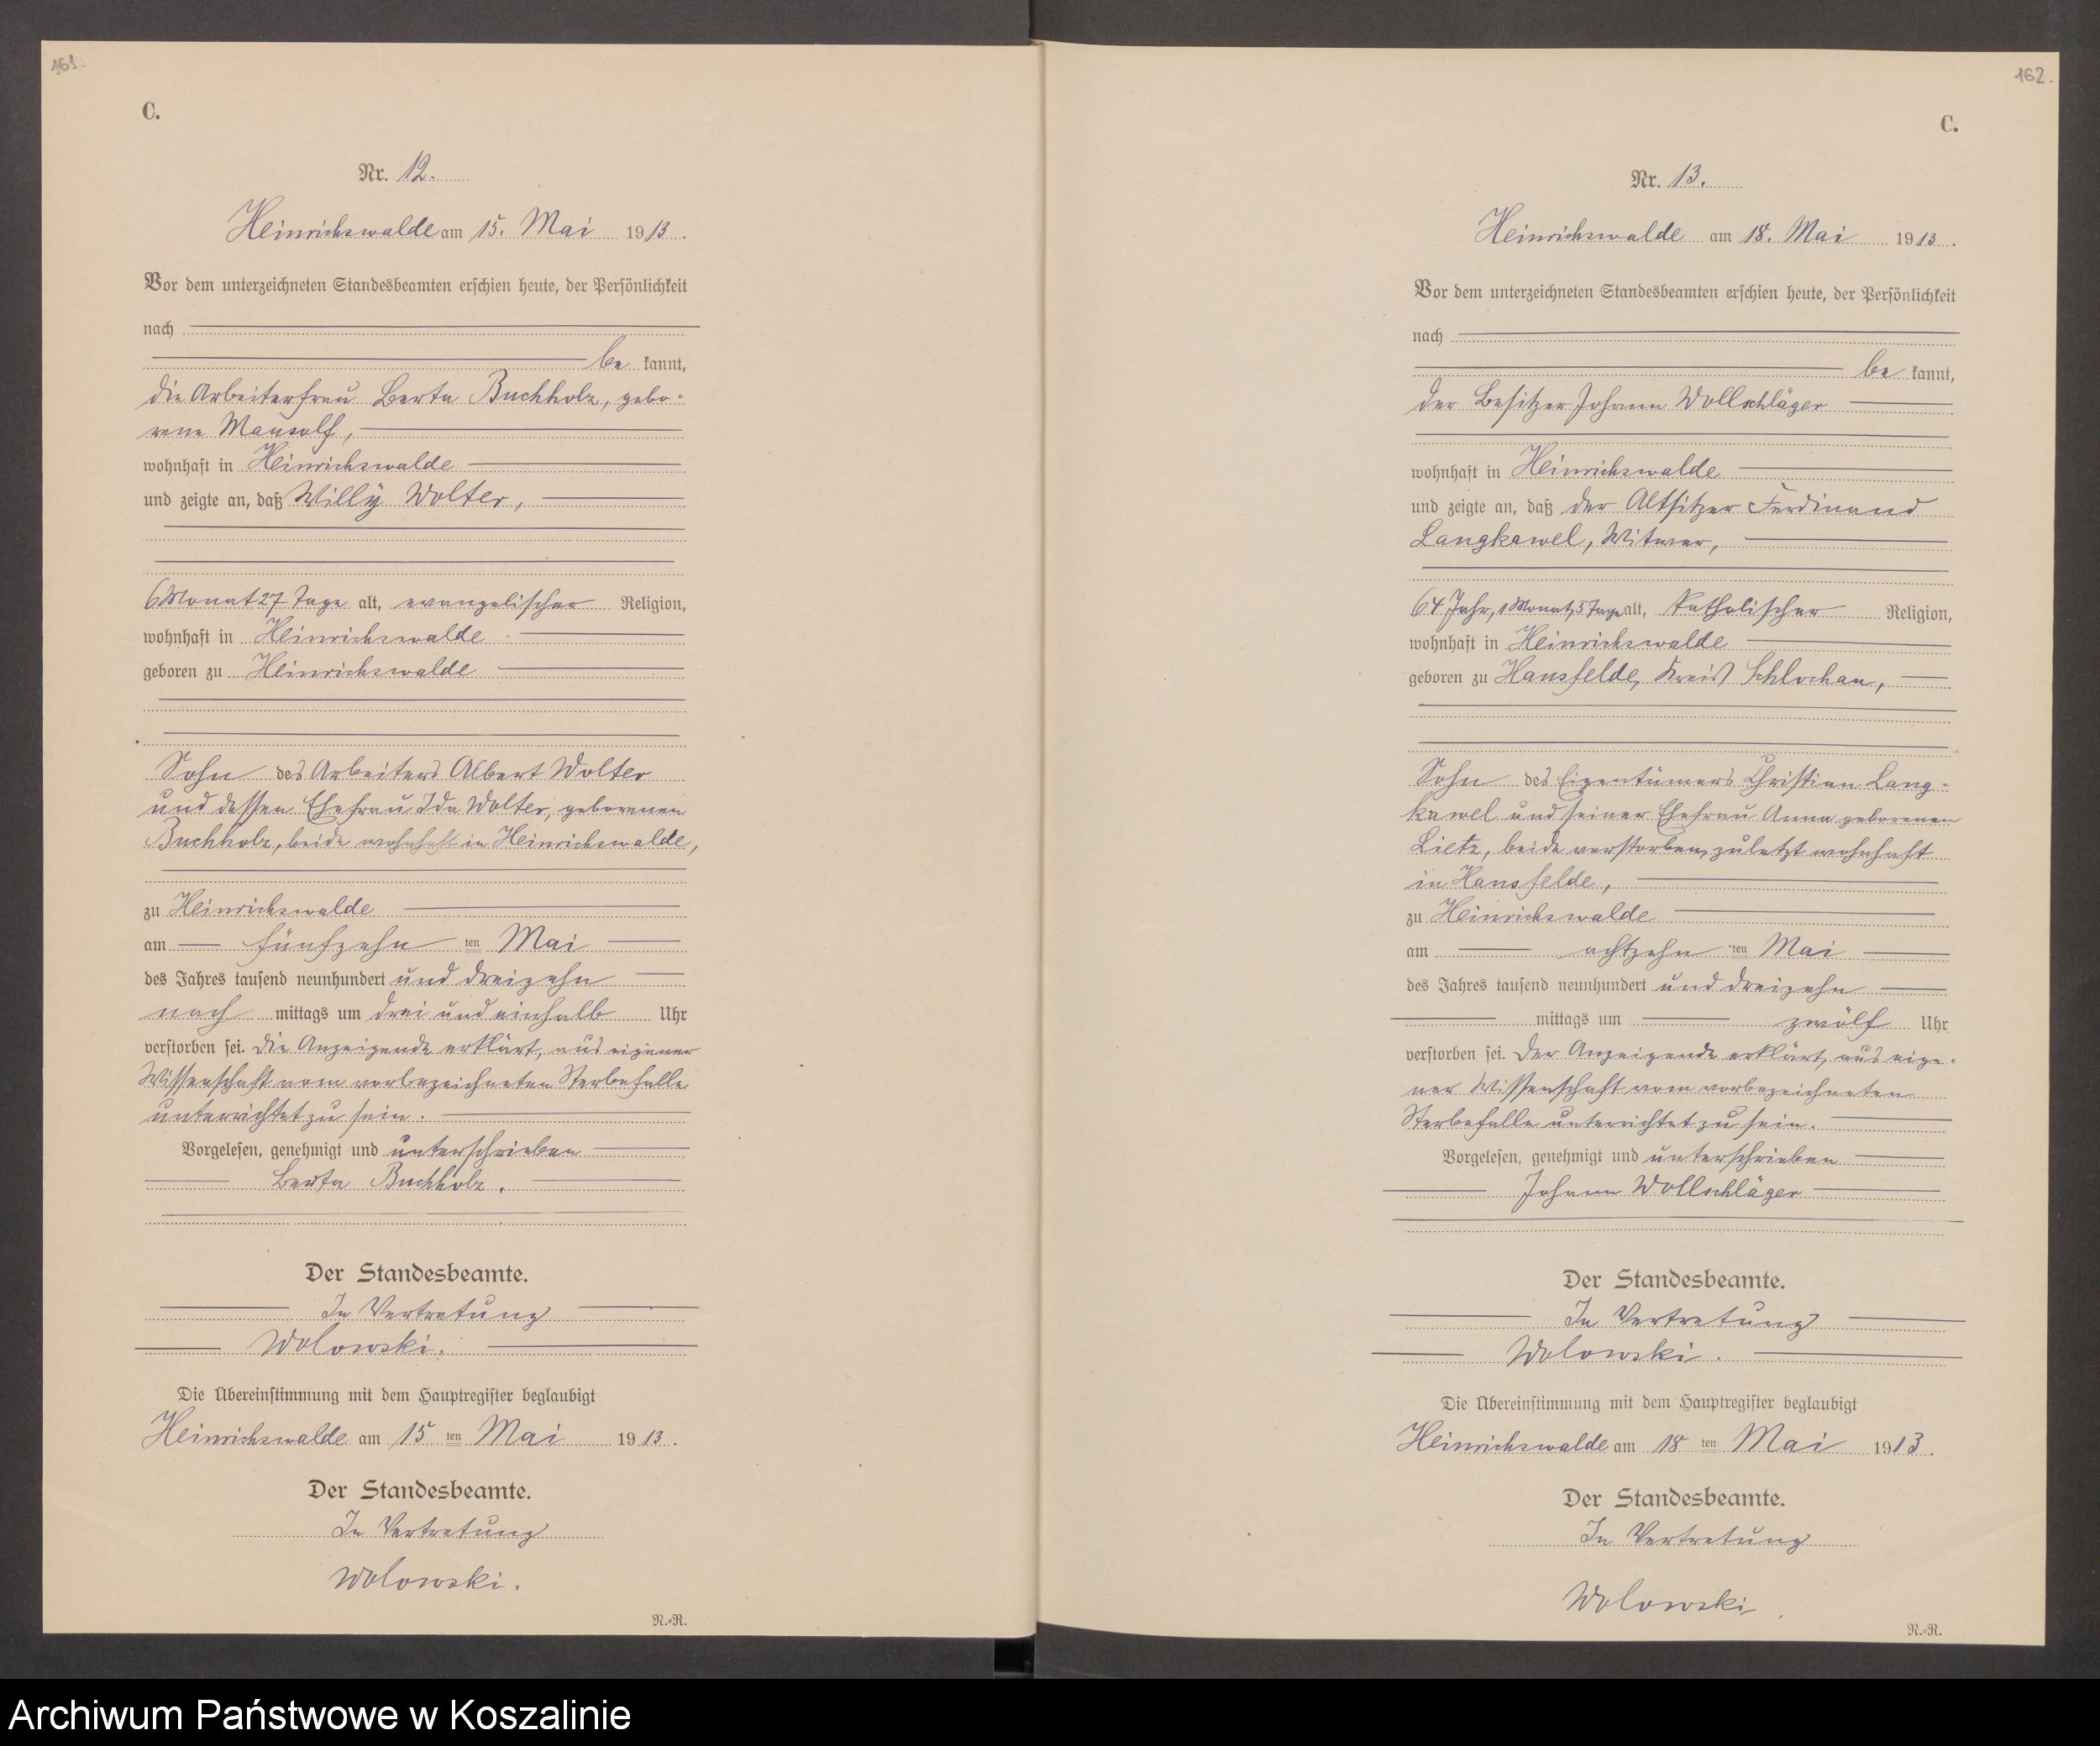 161.
C.
Nr. 12.
Heinrichswalde am 15. Mai 1913.
Vor dem unterzeichneten Standesbeamten erschien heute, der Persönlichkeit
nach
be kannt,
die Arbeiterfrau Berta Buchholz, gebo-
rene Mausolf,
wohnhaft in Heinrichswalde
und zeigte an, daß Willÿ Wolter,
6 Monat 27 Tage alt, evangelischer Religion,
wohnhaft in Heinrichswalde
geboren zu Heinrichswalde
Sohn des Arbeiters Albert Wolter
und dessen Ehefrau Ida Wolter, geborenen
Buchholz, beide wohnhaft in Heinrichswalde,
zu Heinrichswalde
am fünfzehn ten Mai
des Jahres tausend neunhundert und dreizehn
nach mittags um drei und einhalb Uhr
verstorben sei. Die Anzeigende erklärt, aus eigener
Wissenschaft vom vorbezeichneten Sterbefalle
unterrichtet zu sein.
Vorgelesen, genehmigt und unterschrieben
Berta Buchholz.
Der Standesbeamte.
In Vertretung
Wolowski.
Die Übereinstimmung mit dem Hauptregister beglaubigt
Heinrichswalde am 15 ten Mai 1913.
Der Standesbeamte.
In Vertretung
Wolowski.
N.=R.
162.
C.
Nr. 13.
Heinrichswalde am 18. Mai 1913.
Vor dem unterzeichneten Standesbeamten erschien heute, der Persönlichkeit
nach
be kannt,
der Besitzer Johann Wollschläger
wohnhaft in Heinrichswalde
und zeigte an, daß der Altsitzer Ferdinand
Langkawel, Witwer,
64 Jahr, 1 Monat, 5 Tage alt, katholischer Religion,
wohnhaft in Heinrichswalde
geboren zu Hansfelde, Kreis Schlochau,
Sohn des Eigentümers Christian Lang-
kawel und seiner Ehefrau Anna geborenen
Lietz, beide verstorben, zuletzt wohnhaft
in Hansfelde,
zu Heinrichswalde
am achtzehn ten Mai
des Jahres tausend neunhundert und dreizehn
mittags um zwölf Uhr
verstorben sei. Der Anzeigende erklärt, aus eige-
ner Wissenschaft vom vorbezeichneten
Sterbefalle unterrichtet zu sein.
Vorgelesen, genehmigt und unterschrieben
Johann Wollschläger
Der Standesbeamte.
In Vertretung
Wolowski.
Die Übereinstimmung mit dem Hauptregister beglaubigt
Heinrichswalde am 18 ten Mai 1913.
Der Standesbeamte.
In Vertretung
Wolowski.
N.=R.
Archiwum Państwowe w Koszalinie